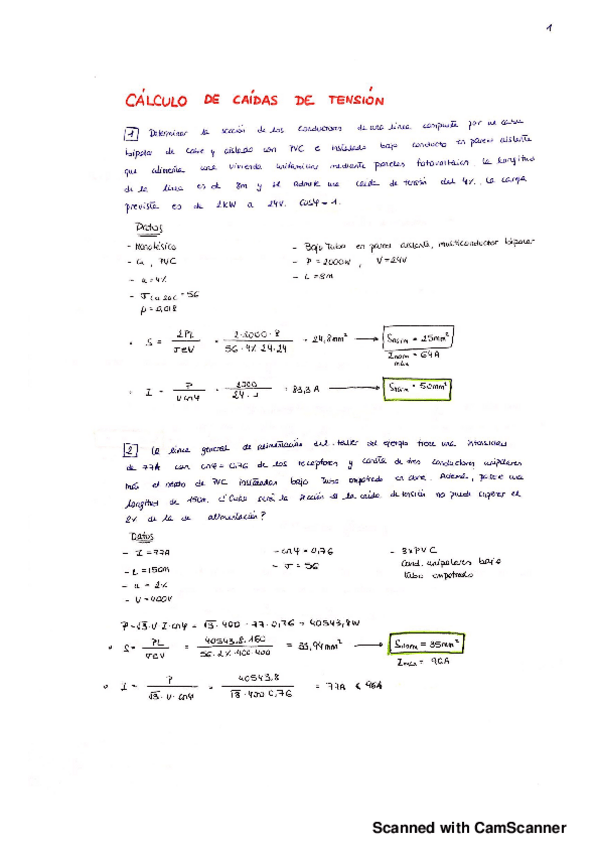 1
CÁLCULO DE CAÍDAS DE TENSIÓN
1 Determinar la sección de los conductores de una línea compuesta por un cable
bipolar de cobre y aislado con PVC e instalado bajo conducto en pared aislante
que alimenta una vivienda unitaria mediante paneles fotovoltaicos. La longitud
de la línea es de 8m y se admite una caída de tensión del 4%. La carga
prevista es de 2kW a 24V. Cosφ = 1.
Datos
- Monofásico - Bajo tubo en pared aislante, multiconductor bipolar
- Cu, PVC - P = 2000W, V = 24V
- u = 4% - L = 8m
- σ Cu 20C = 56
ρ = 0,018
· S = 2PL / σeV = 2·2000·8 / 56·4%·24·24 = 24,8mm² → Snorm = 25mm²
Inom máx = 64A
· I = P / V cosφ = 2000 / 24·1 = 83,3A → Snorm = 50mm²
2 La línea general de alimentación del taller del ejemplo trae una intensidad
de 77A con cosφ = 0,76 de los receptores y consta de tres conductores unipolares
más el neutro de PVC instalados bajo tubo empotrado en obra. Además, posee una
longitud de 150m. ¿Cuál será la sección si la caída de tensión no puede superar el
2% de la de alimentación?
Datos
- I = 77A - cosφ = 0,76 - 3xPVC
- L = 150m - σ = 56 Cond. unipolares bajo
- u = 2% tubo empotrado
- V = 400V
P = √3·V·I·cosφ = √3·400·77·0,76 = 40543,8W
· S = PL / σeV = 40543,8·150 / 56·2%·400·400 = 33,94mm² → Snorm = 35mm²
Imax = 96A
· I = P / √3·V·cosφ = 40543,8 / √3·400·0,76 = 77A < 96A
Scanned with CamScanner